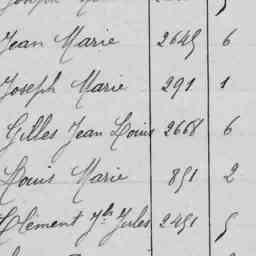 Joseph
Jean Marie 2645 6
Joseph Marie 291 1
Gilles Jean Louis 2668 6
Louis Marie 851 2
Clément Jules 2451 5